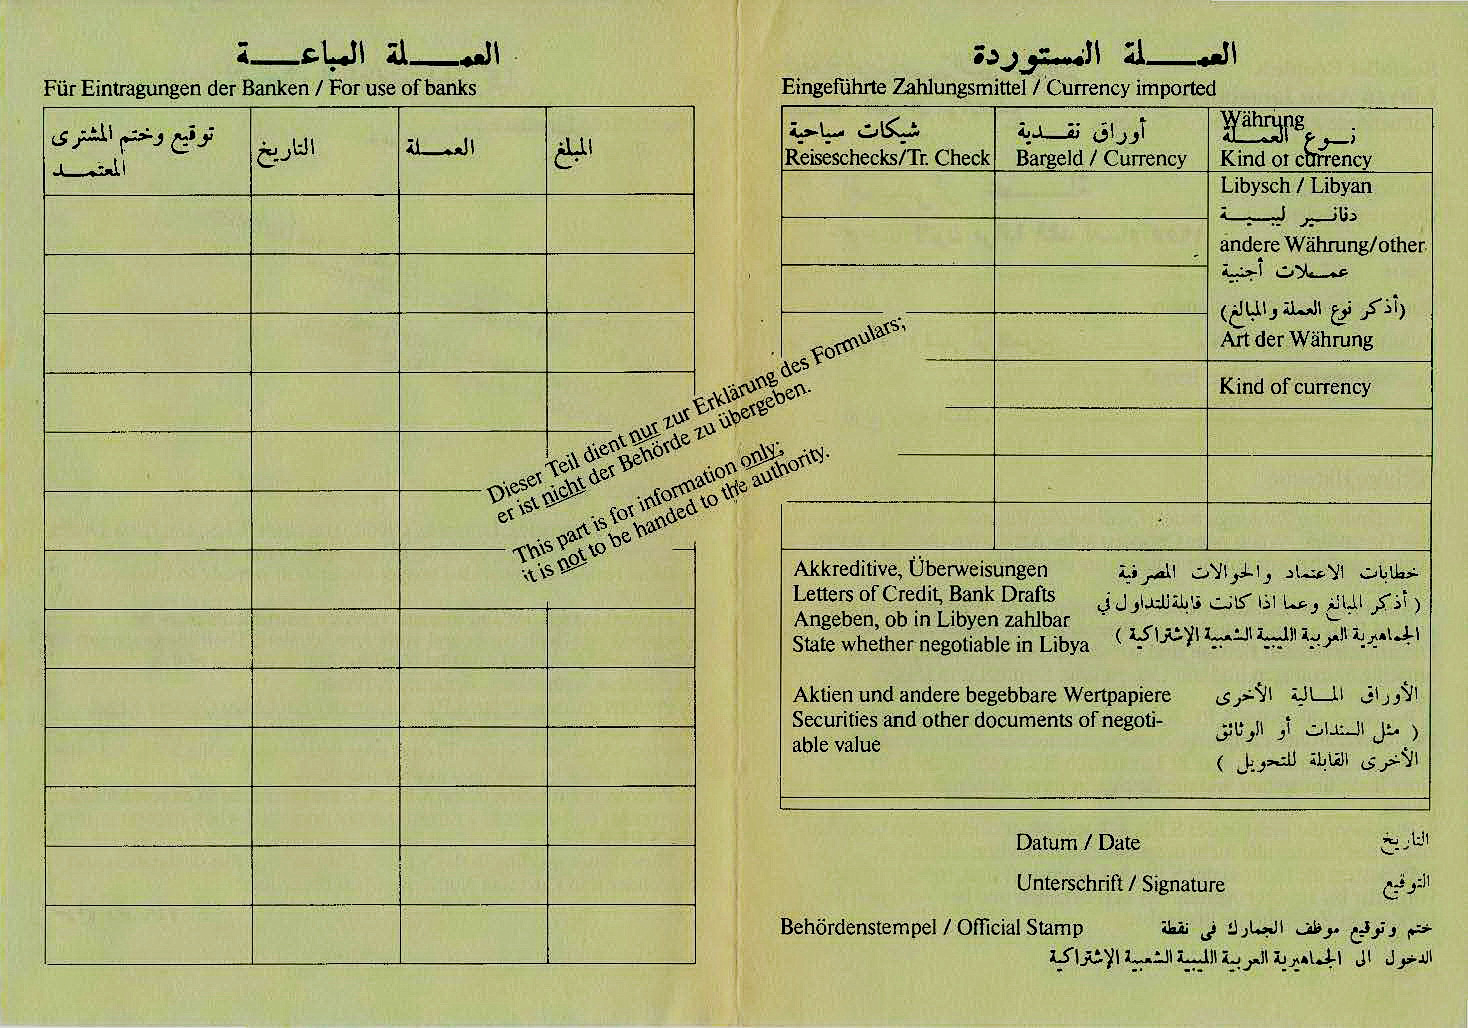 العمـــلة المباعـــة
Für Eintragungen der Banken / For use of banks
توقيع وختم المشترى
المعتمـــد
التاريخ
العمـــلة
المبلغ
Dieser Teil dient nur zur Erklärung des Formulars;
er ist nicht der Behörde zu übergeben.
This part is for information only;
it is not to be handed to the authority.
العمـــلة المستوردة
Eingeführte Zahlungsmittel / Currency imported
شيكات سياحية
Reiseschecks/Tr. Check
أوراق نقـدية
Bargeld / Currency
Währung
نــوع العمــلة
Kind of currency
Libysch / Libyan
دنانــير ليبيــة
andere Währung/other
عمــلات أجنبية
(أذكر نوع العملة والمبالغ)
Art der Währung
Kind of currency
Akkreditive, Überweisungen
Letters of Credit, Bank Drafts
Angeben, ob in Libyen zahlbar
State whether negotiable in Libya
خطابات الاعتماد والحوالات المصرفية
( أذكر المبالغ وعما اذا كانت قابلة للتداول في
الجماهيرية العربية الليبية الشعبية الإشتراكية )
Aktien und andere begebbare Wertpapiere
Securities and other documents of negoti-
able value
الأوراق المــالية الأخرى
( مثل السندات أو الوثائق
الأخرى القابلة للتحويل )
Datum / Date التاريخ
Unterschrift / Signature التوقيع
Behördenstempel / Official Stamp ختم وتوقيع موظف الجمارك فى نقطة
الدخول الى الجماهيرية العربية الليبية الشعبية الإشتراكية